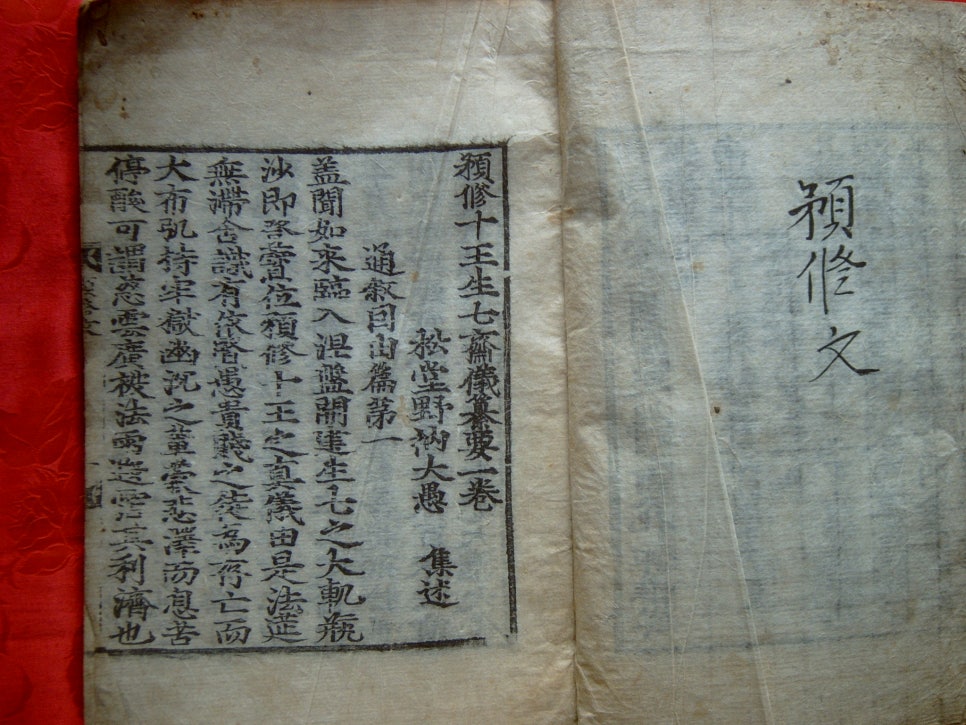 預修文
預修十王生七齋儀纂要一卷
松堂野衲大愚 集述
通叙因由篇第一
盖聞如來臨入涅盤開建生七之大軌瓶
沙即登寶位預修十王之真儀由是法筵
無滯含識有依智愚貴賤之徒為存亡而
大布弘持牢獄幽沉之輩蒙悲澤而息苦
停酸可謂慈雲廣
法雨
其利濟也